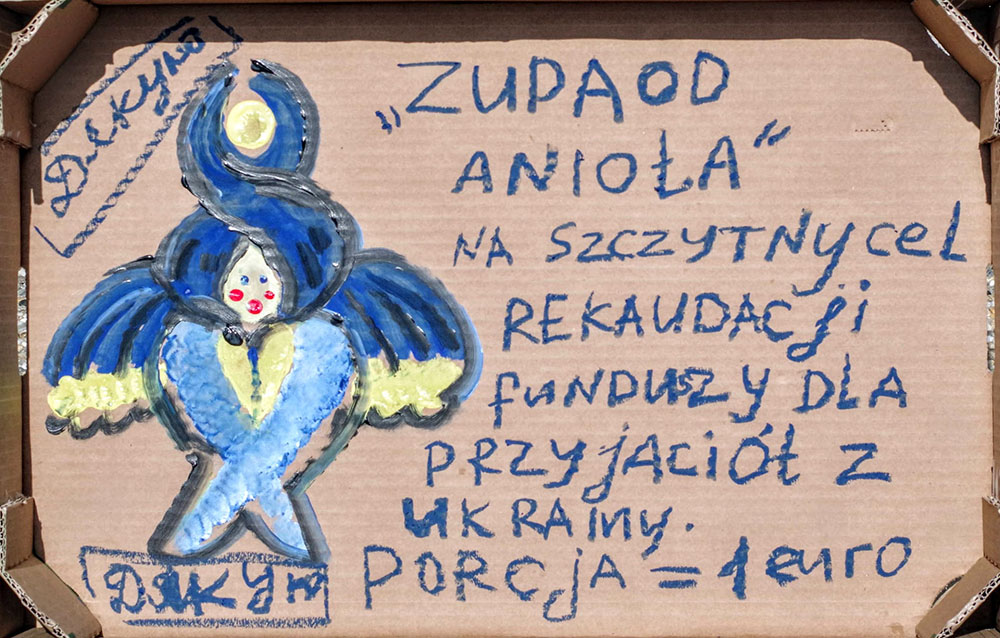 Дякую
„ZUPA OD
ANIOŁA"
NA SZCZYTNY CEL
REKAUDACJI
FUNDUSZY DLA
PRZYJACIÓŁ Z
UKRAINY.
PORCJA = 1 euro
ДЯКУЮ